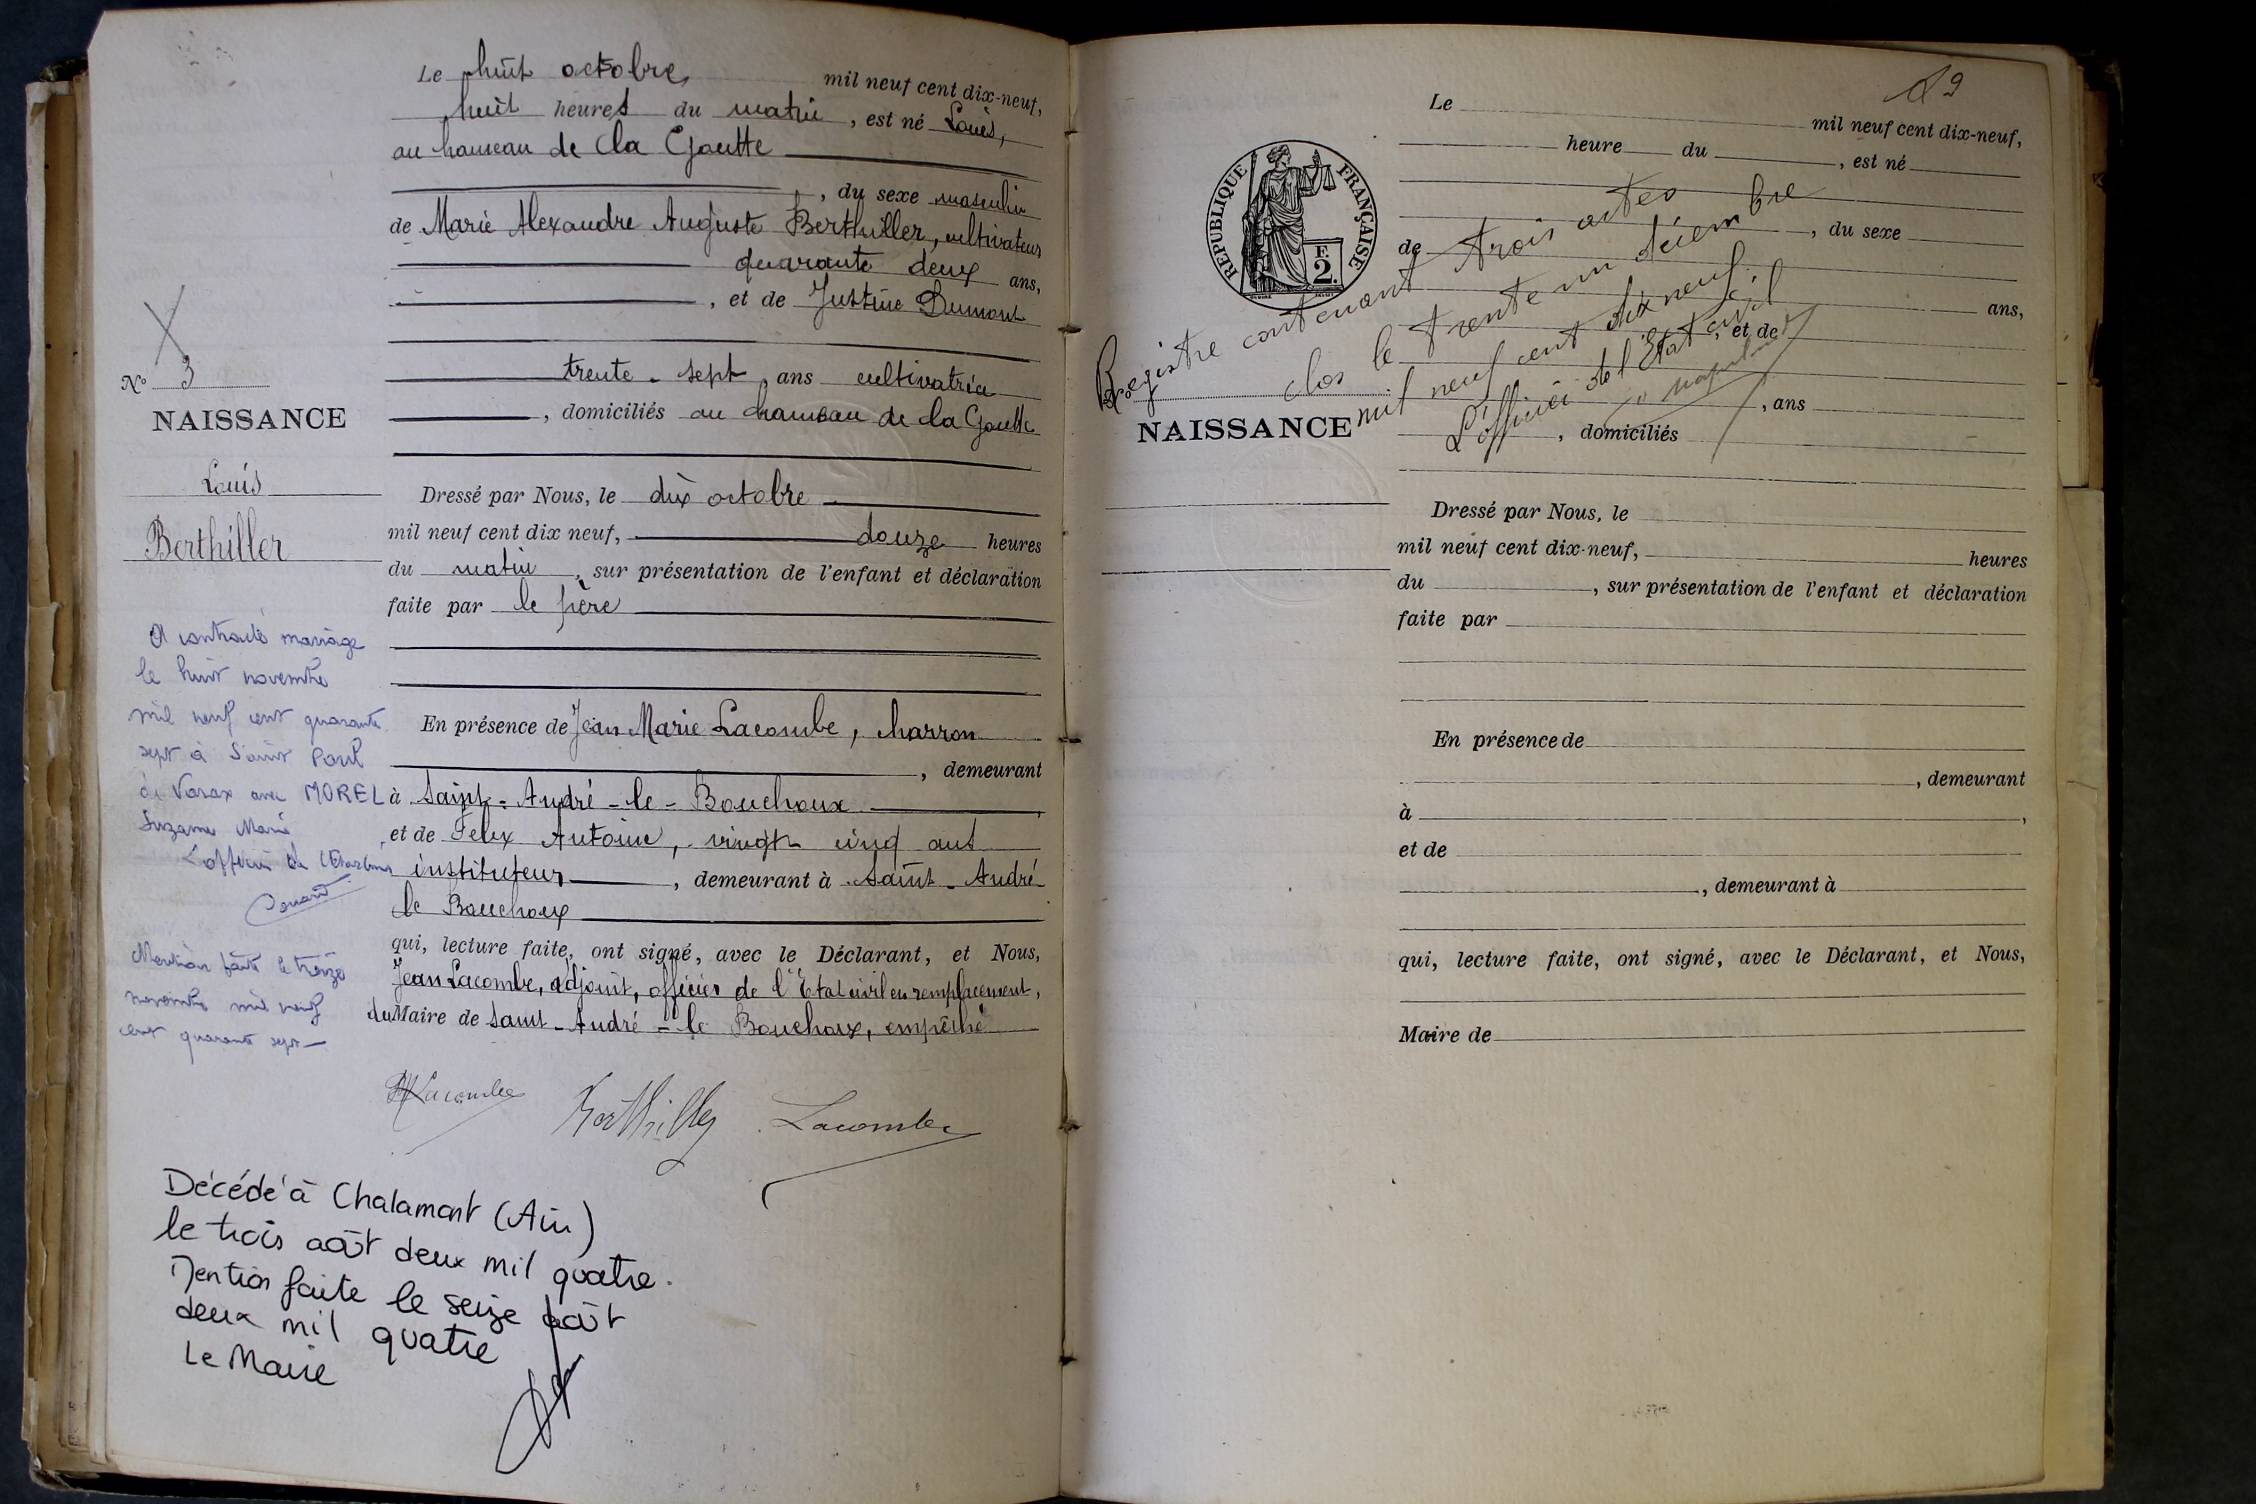 Le huit octobre mil neuf cent dix-neuf,
huit heures du matin, est né Louis,
au hameau de la Goutte
, du sexe masculin
de Marie Alexandre Auguste Berthiller, cultivateur
quarante deux ans,
, et de Justine Dumont
trente-sept, ans cultivatrice
, domiciliés au hameau de la Goutte
Nº 3
NAISSANCE
Louis
Berthiller
Dressé par Nous, le dix octobre
mil neuf cent dix neuf, douze heures
du matin, sur présentation de l'enfant et déclaration
faite par le père
En présence de Jean Marie Lacombe, charron
, demeurant
à Saint-André-le-Bouchoux
et de Félix Antoine, vingt cinq ans
instituteur, demeurant à Saint-André
le Bouchoux
qui, lecture faite, ont signé, avec le Déclarant, et Nous,
Jean Lacombe, adjoint, officier de l'Etat civil en remplacement,
du Maire de Saint-André-le Bouchoux, empêché
A contracté mariage
le huit novembre
mil neuf cent quarante
sept à Saint Paul
de Varax avec MOREL
Suzanne Marie
L'officier de l'Etat civil
Mention faite le treize
novembre mil neuf
cent quarante sept
Lacombe Berthiller Lacombe
Décédé à Chalamont (Ain)
le trois août deux mil quatre.
Mention faite le seize août
deux mil quatre
Le Maire
Le mil neuf cent dix-neuf,
heure du , est né
, du sexe
de
ans,
, et de
, ans
, domiciliés
RÉPUBLIQUE FRANÇAISE
F.
2.
Registre contenant trois actes
clos le trente un décembre
mil neuf cent dix neuf.
L'officier de l'Etat civil
Nº
NAISSANCE
Dressé par Nous, le
mil neuf cent dix-neuf, heures
du , sur présentation de l'enfant et déclaration
faite par
En présence de
, demeurant
à ,
et de
, demeurant à
qui, lecture faite, ont signé, avec le Déclarant, et Nous,
Maire de